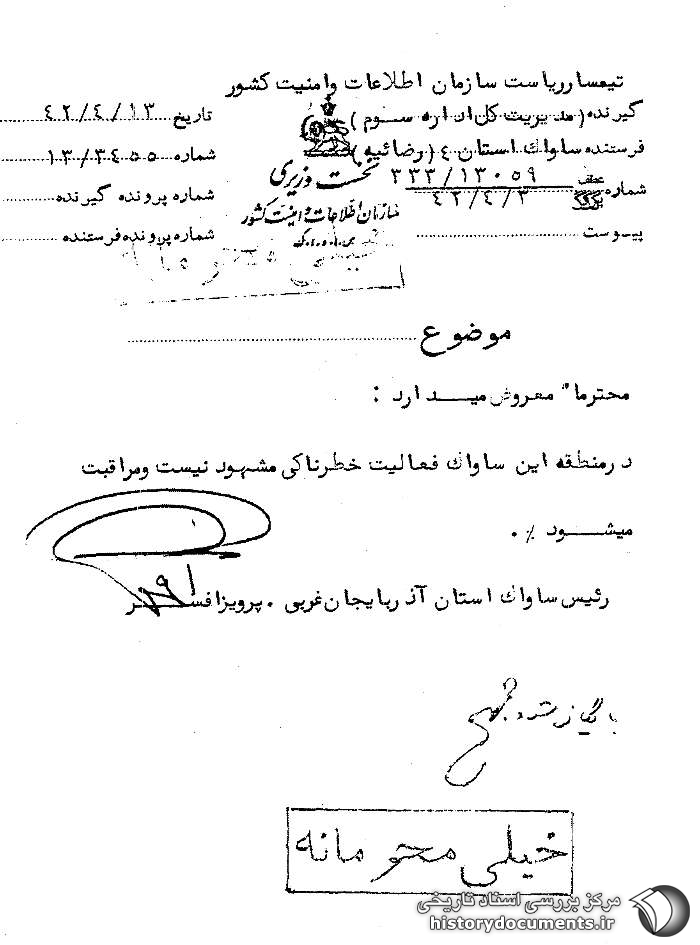 تیمسار ریاست سازمان اطلاعات وامنیت کشور
گیرنده (مدیریت کل اداره سوم)
تاریخ ۴۲/۴/۱۳
فرستنده ساواک استان ۴ (رضائیه)
شماره ۱۳/۳۴۵۵
عطف
شماره ۳۳۳/۱۳۰۵۹
۴۲/۴/۳
شماره پرونده گیرنده
پیوست
شماره پرونده فرستنده
نخست وزیری
سازمان اطلاعات و امنیت کشور
س.ا.و.ا.ک
موضوع
محترما" معروض میـدارد :
درمنطقه این ساواک فعالیت خطرناکی مشهود نیست ومراقبت
میشـود ٪ .
رئیس ساواک استان آذربایجان غربی . پرویز افسـر
بایگانی شود
خیلی محرمانه
مرکز بررسی اسناد تاریخی
historydocuments.ir